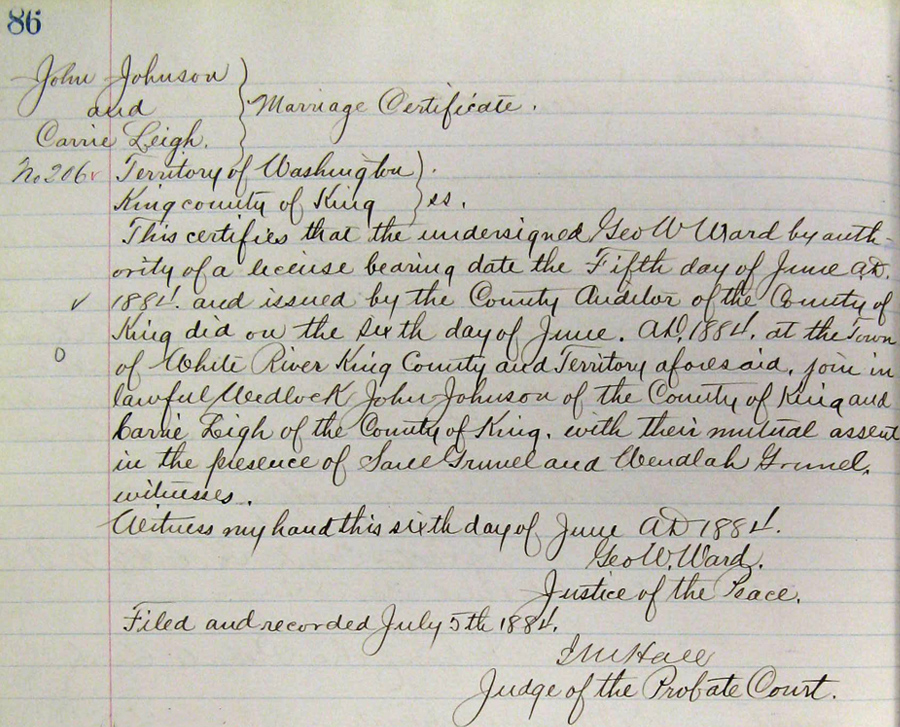 86
John Johnson
and
Carrie Leigh.
Marriage Certificate.
No 206 Territory of Washington
King county of King ss.
This certifies that the undersigned Geo W Ward by auth-
ority of a license bearing date the Fifth day of June A.D.
1884. and issued by the County Auditor of the County of
King did on the sixth day of June. A.D. 1884. at the Town
of White River King County and Territory aforesaid, join in
lawful Wedlock John Johnson of the County of King and
Carrie Leigh of the County of King. with their mutual assent
in the presence of and
witnesses.
Witness my hand this sixth day of June AD 1884.
Geo W. Ward.
Justice of the Peace.
Filed and recorded July 5th 1884.
Hall
Judge of the Probate Court.